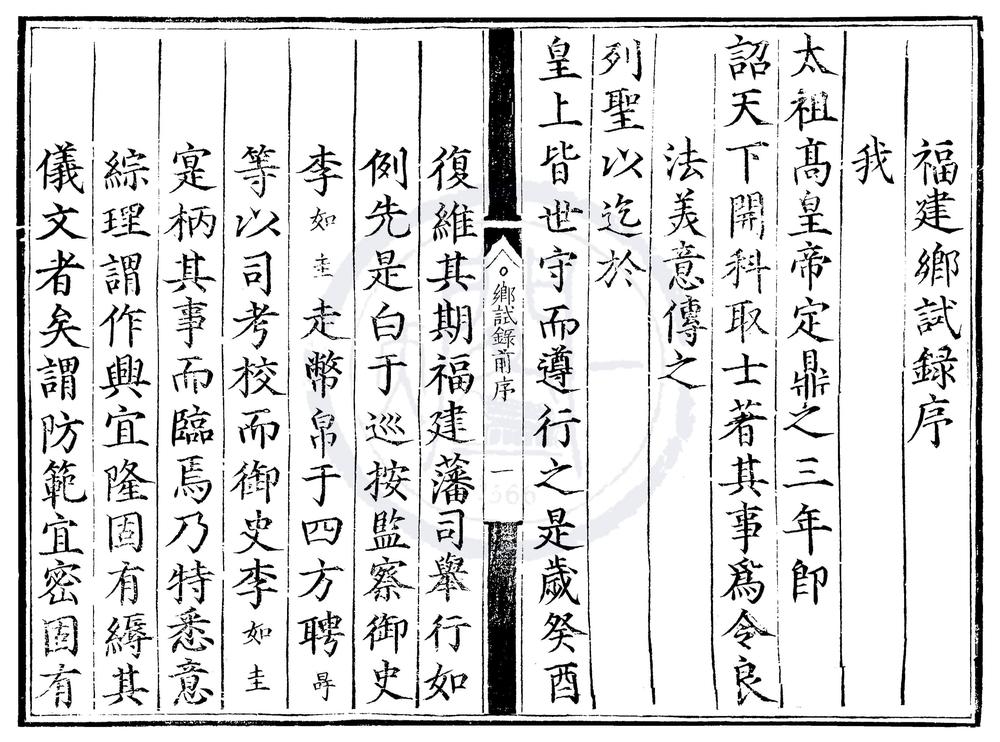 福建鄉試録序
我
太祖髙皇帝定鼎之三年即
詔天下開科取士著其事爲令良
法美意傳之
列聖以迄於
皇上皆世守而遵行之是歲癸酉
鄉試錄前序
一
復維其期福建藩司舉行如
例先是白于巡按監察御史
李如圭走幣帛于四方聘
等以司考校而御史李如圭
寔柄其事而臨焉乃特悉意
綜理謂作興宜隆固有縟其
儀文者矣謂防範宜密固有